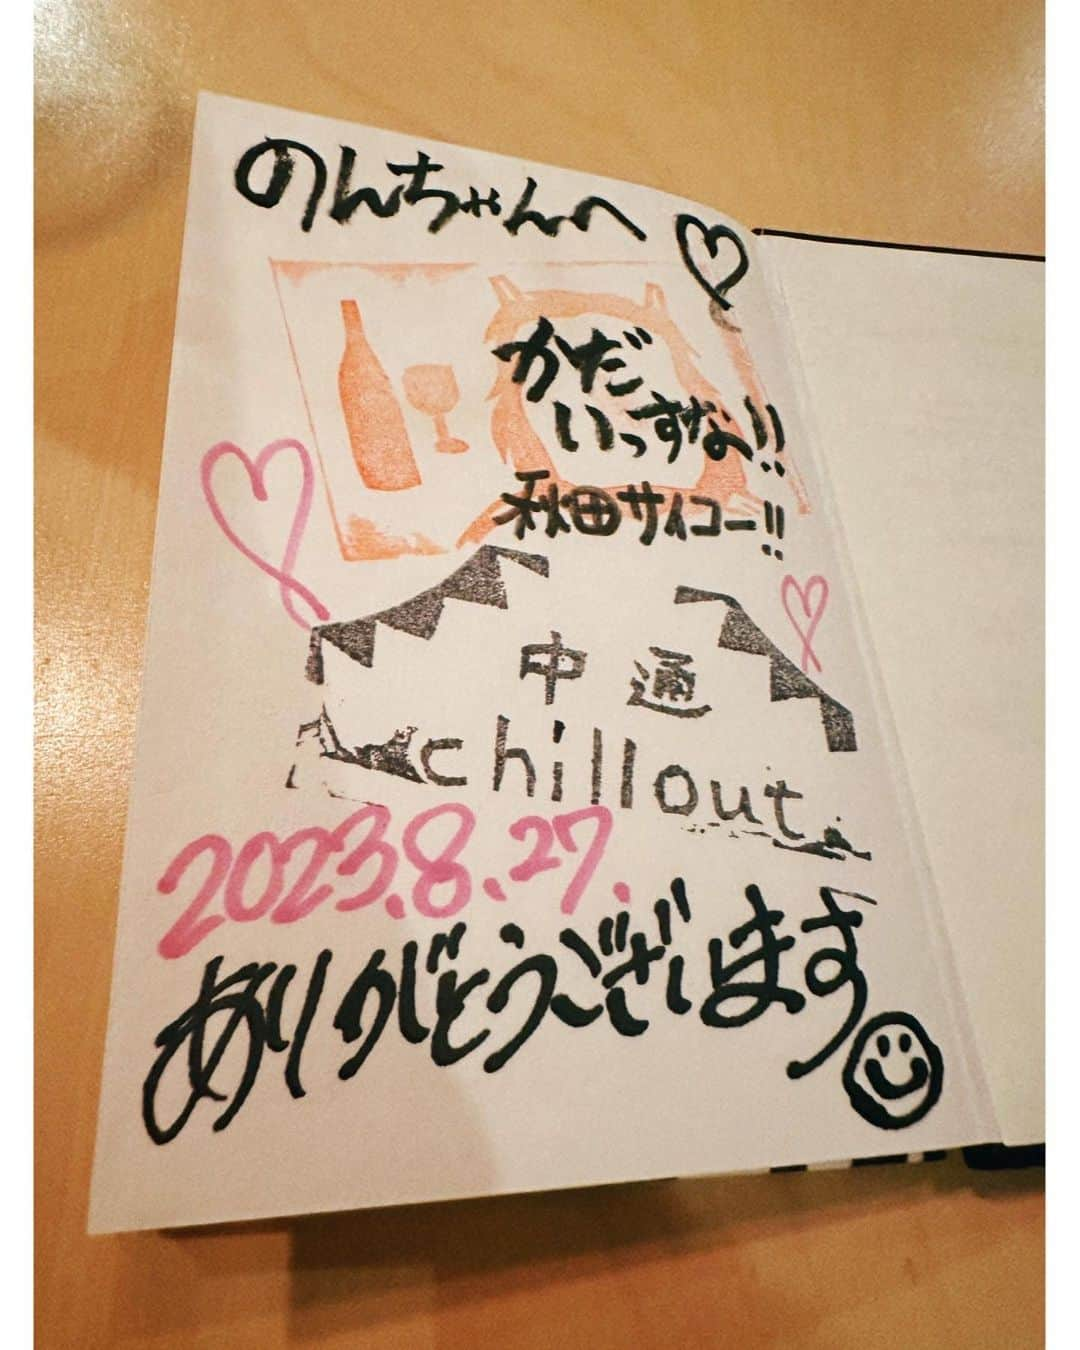 のんちゃんへ
かだ
いっすな!!
秋田サイコー!!
中通
chillout
2023.8.27.
ありがとうございます